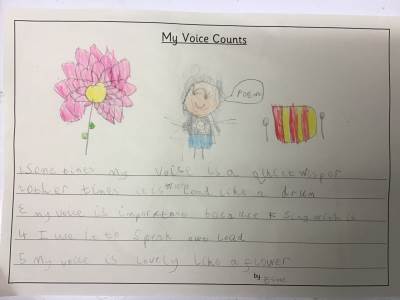 My Voice Counts
Poem
1 Sometimes my voice is a quiet wisper
2 Other times it is loud like a drum
3 my voice is important because I sing with it
4 I use it to speak out loud
5 My voice is lovely like a flower
by